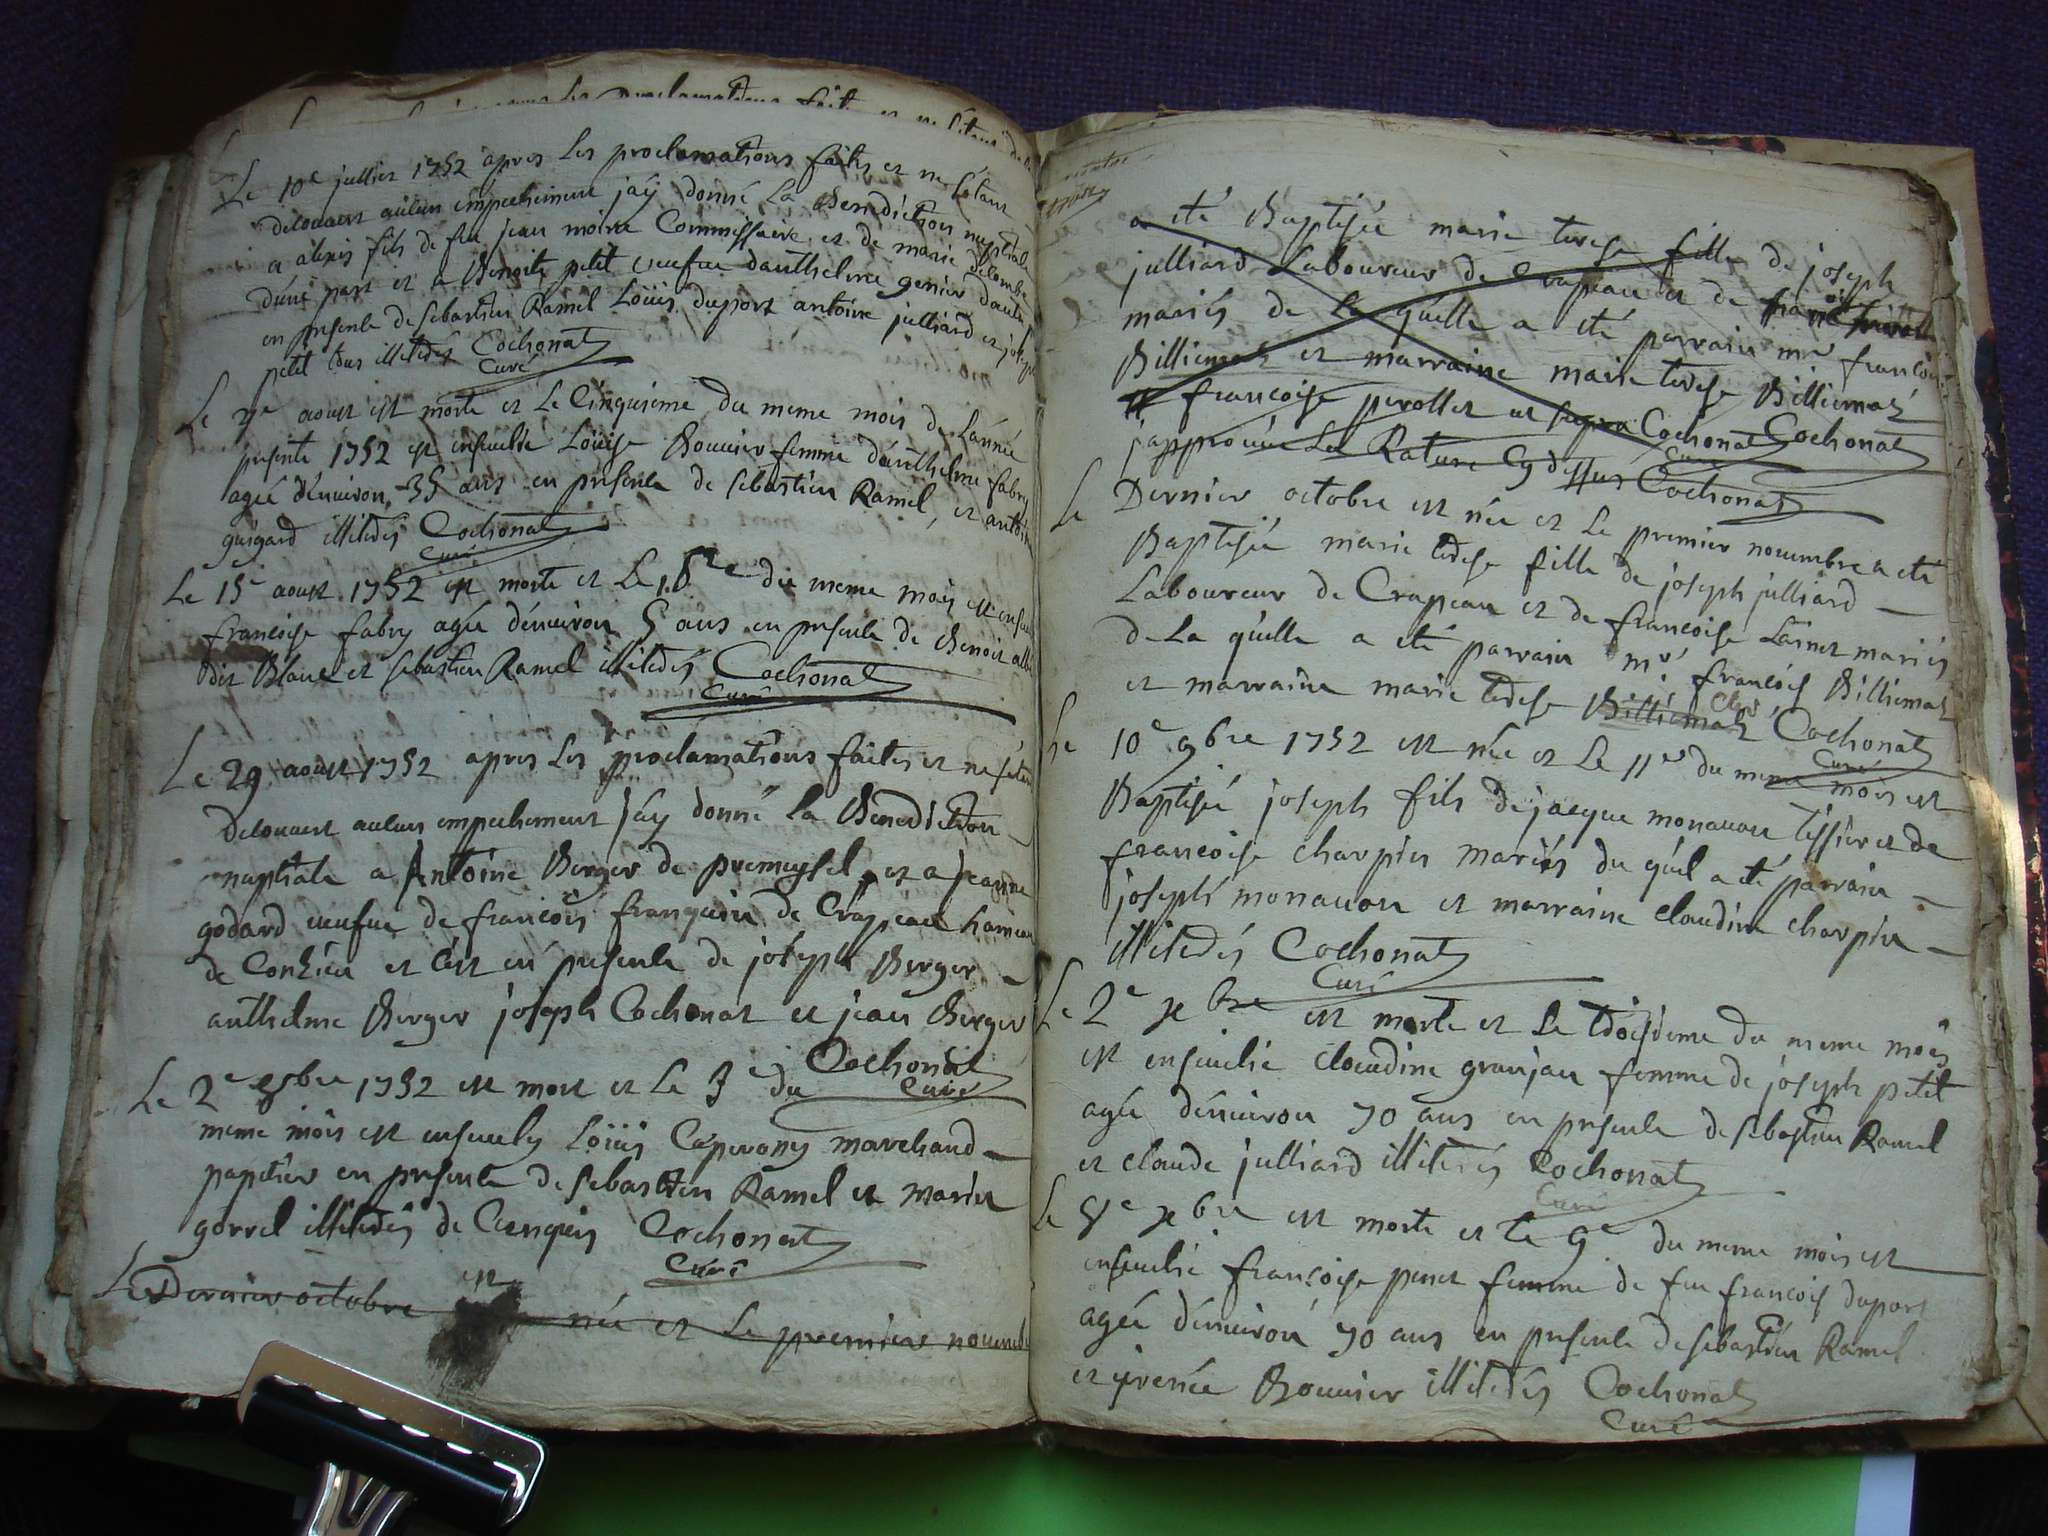 Le 10e juillet 1752 apres les proclamations faites et ne setant
decouvert aucun empechement jay donné La Benediction nuptiale
a alexis fils de feu jean moine Commissaire et de marie
dune part et a Benoite petit veufve danthelme genier dautre
en presente de sebastien Ramel Loüis duport antoine julliard et joseph
petit tous illiterés Cochonat
Curé
Le aoust est morte et Le Cinquieme du meme mois de Lannée
presente 1752 est ensevelie Loüise Bouvier femme danthelme fabry
agée denviron 35 ans en presente de sebastien Ramel, et antoine
guigard illiterés Cochonat
Curé
Le 15e aoust 1752 est morte et Le du meme mois est
francoise fabry agée denviron 5 ans en presente de Benoit
dit Blanc et sebastien Ramel illiterés Cochonat
Curé
Le 29 aoust 1752 apres Les proclamations faites et ne
decouvert aucun empechement jay donné la Benediction
nuptiale a Antoine Berger de premeysel et a jeanne
godard veufve de francois franquin de Crapeau hameau
de Conzieu et cest en presente de joseph Berger
anthelme Berger joseph Cochonat et jean Berger
Cochonat
Curé
Le 2e 8bre 1752 est mort et Le 3e du
meme mois est ensevely Loüis Caperony marchand
papetier en presente de sebastien Ramel et
gorrel illiterés de Cochonat
Curé
Le Dernier octobre est née et Le premier
a eté Baptisée marie terese fille de joseph
julliard Laboureur de Crapeau et de
mariés de La quelle a eté parrain mr francois
Billiemaz et marraine marie terese Billiemaz
francoise perollet ut supra Cochonat Cochonat
Curé
japprouve La Rature Cy dessus Cochonat
Le Dernier octobre est née et Le premier novembre a eté
Baptisée marie terese fille de joseph julliard
Laboureur de Crapeau et de francoise Lainet mariés
de La quelle a eté parrain mr francois Billiemaz
et marraine marie terese Billiemaz Cochonat
Curé
Le 10e 9bre 1752 est née et Le 11e du meme mois est
Baptisé joseph fils de jacque monavon tissier et de
francoise charpin mariés du quel a eté parrain
joseph monavon et marraine claudine charpin
illiterés Cochonat
Curé
Le 2e xbre est morte et Le troisieme du meme mois
est ensevelie claudine granjan femme de joseph petit
agée denviron 70 ans en presente de sebastien Ramel
et claude julliard illiterés Cochonat
Curé
Le xbre est morte et Le 9e du meme mois est
ensevelie francoise penet femme de feu francois duport
agée denviron 70 ans en presente de sebastien Ramel
et irenée Bouvier illiterés Cochonat
Curé